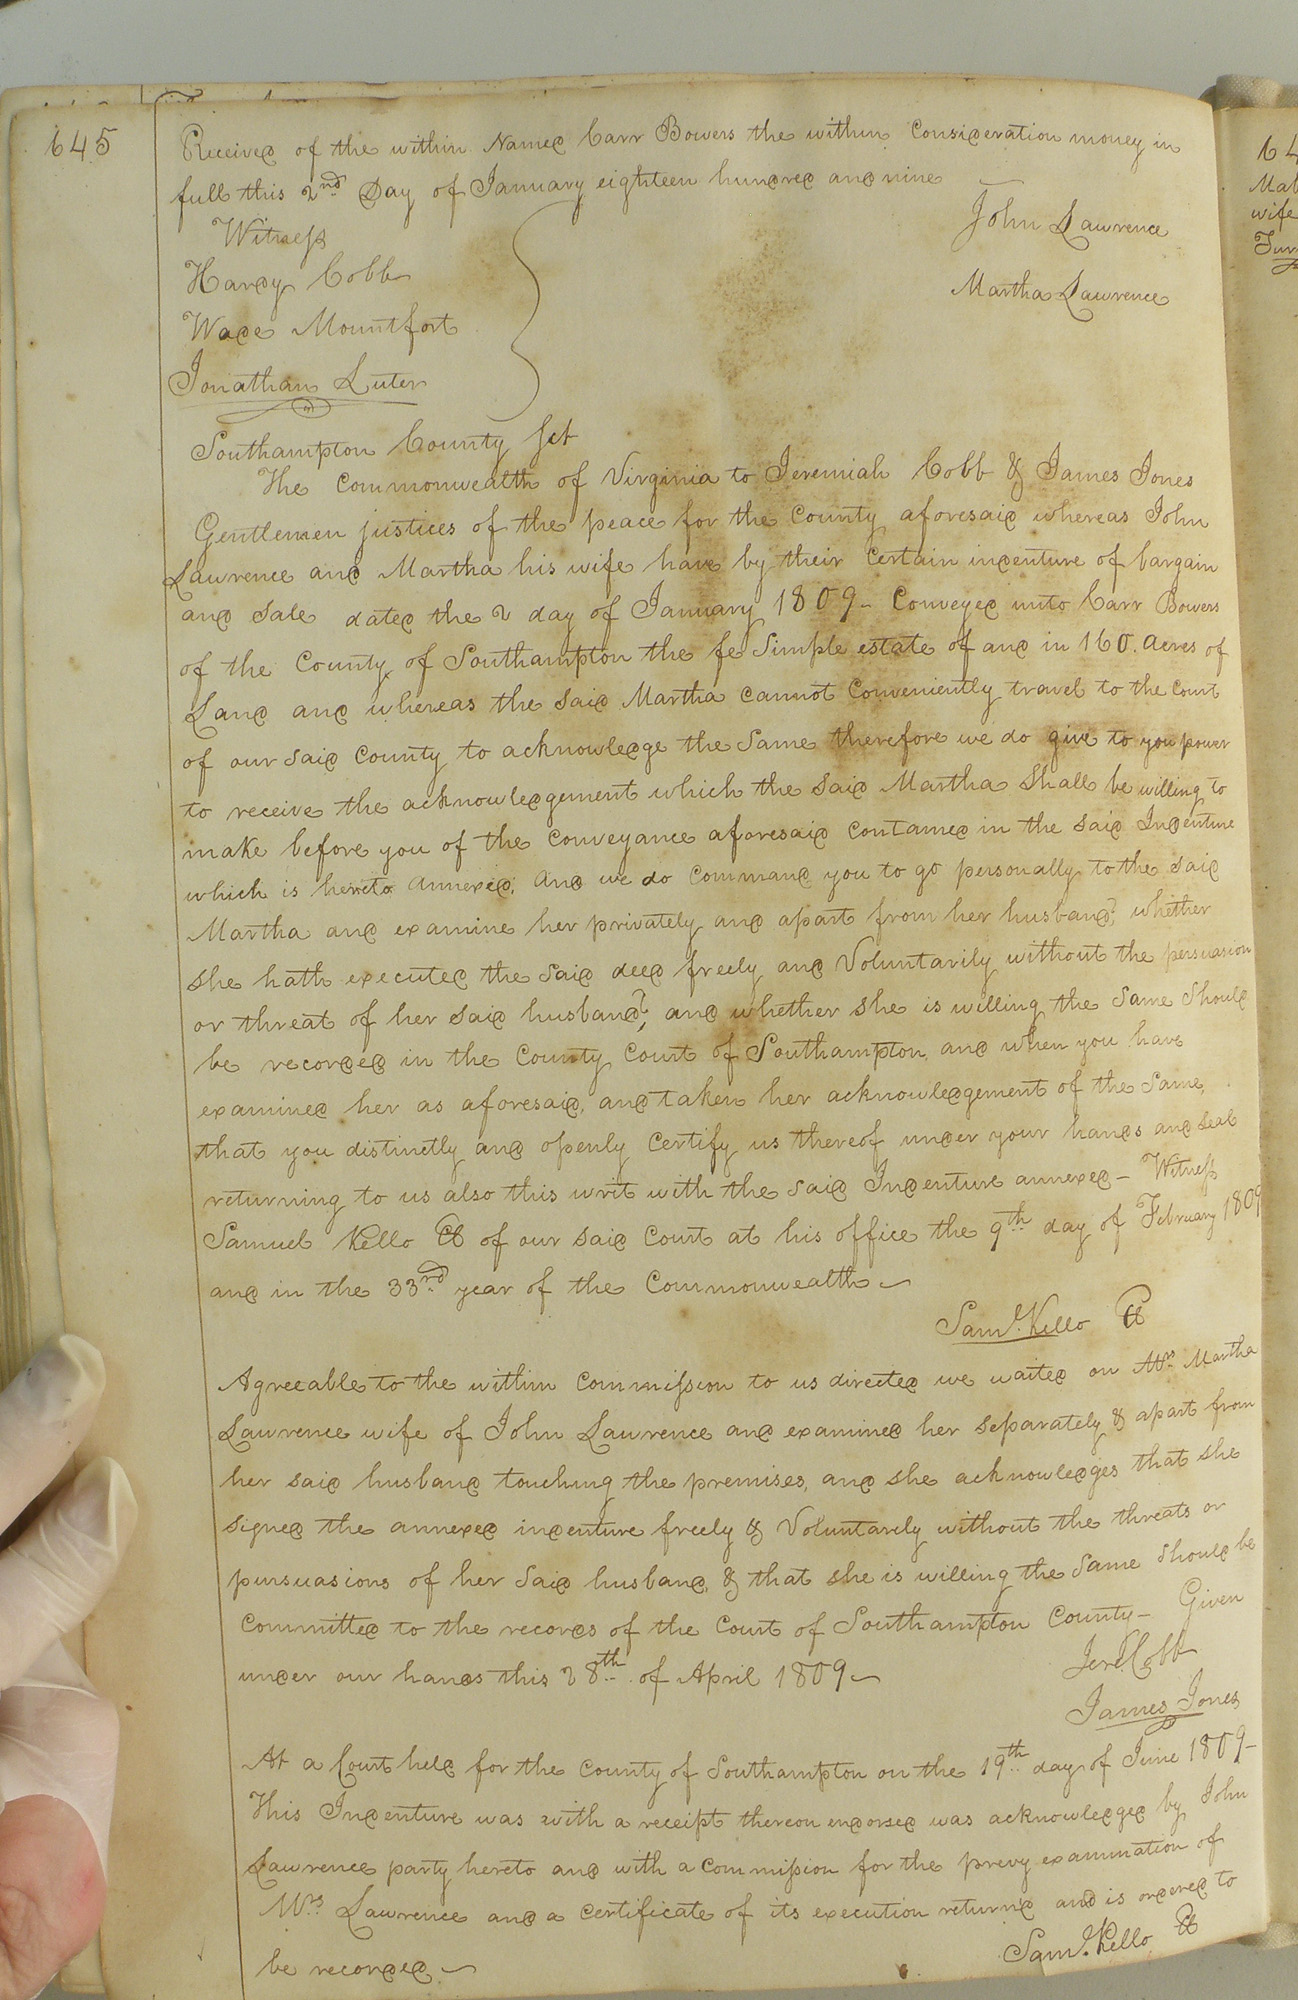 645
Received of the within Named Carr Bowers the within Consideration money in
full this 2nd Day of January eighteen hundred and nine
John Lawrence
Witness
Martha Lawrence
Hardy Cobb
Wade Mountfort
Jonathan Luter
Southampton County Sct
The Commonwealth of Virginia to Jeremiah Cobb & James Jones
Gentlemen justices of the peace for the County aforesaid whereas John
Lawrence and Martha his wife have by their Certain indenture of bargain
and Sale dated the 2 day of January 1809 - Conveyed unto Carr Bowers
of the County of Southampton the fe Simple estate of and in 160. acres of
Land and whereas the said Martha cannot Conveniently travel to the Court
of our said County to acknowledge the Same therefore we do give to you power
to receive the acknowledgement which the said Martha shall be willing to
make before you of the Conveyance aforesaid contained in the said Indenture
which is hereto annexed. And we do command you to go personally to the said
Martha and examine her privately and apart from her husband, whether
she hath executed the said deed freely and Voluntarily without the persuasion
or threat of her said husband, and whether she is willing the Same Should
be recorded in the County Court of Southampton and when you have
examined her as aforesaid, and taken her acknowledgement of the Same,
that you distinctly and openly Certify us thereof under your hands and seal
returning to us also this writ with the said Indenture annexed - Witness
Samuel Kello Cl of our said Court at his office the 9th day of February 1809
and in the 33rd year of the Commonwealth -
Saml. Kello Cl
Agreeable to the within Commission to us directed we waited on Mrs Martha
Lawrence wife of John Lawrence and examined her separately & apart from
her said husband touching the premises, and she acknowledges that she
signed the annexed indenture freely & Voluntarely without the threats or
pursuasions of her said husband, & that she is willing the Same Should be
Committed to the records of the Court of Southampton County - Given
under our hands this 28th of April 1809 -
Jere. Cobb
James Jones
At a Court held for the County of Southampton on the 19th day of June 1809 -
This Indenture was with a receipt thereon endorsed was acknowledged by John
Lawrence party hereto and with a Commission for the prevy examination of
Mrs. Lawrence and a Certificate of its execution return'd and is ordered to
be recorded -
Saml. Kello Cl
64
wife